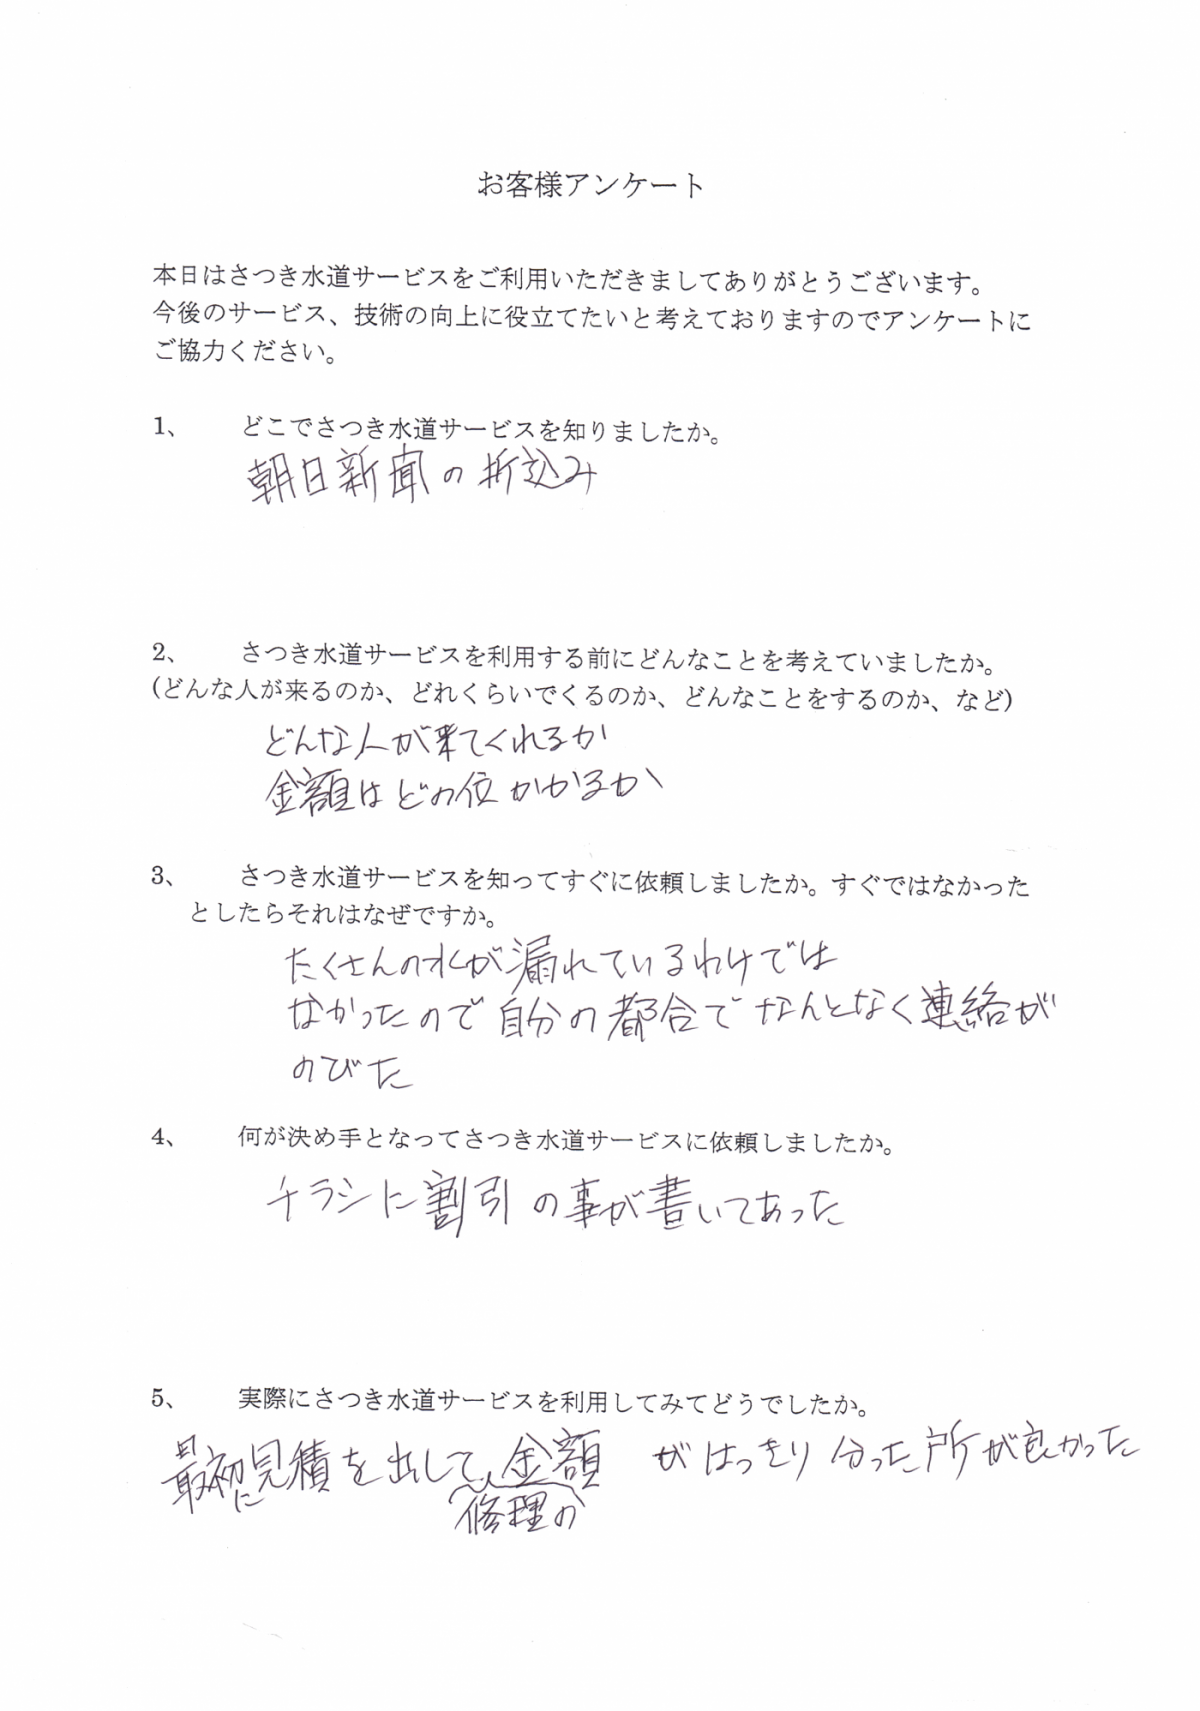 お客様アンケート
本日はさつき水道サービスをご利用いただきましてありがとうございます。
今後のサービス、技術の向上に役立てたいと考えておりますのでアンケートに
ご協力ください。
1、 どこでさつき水道サービスを知りましたか。
朝日新聞の折込み
2、 さつき水道サービスを利用する前にどんなことを考えていましたか。
(どんな人が来るのか、どれくらいでくるのか、どんなことをするのか、など)
どんな人が来てくれるか
金額はどの位かかるか
3、 さつき水道サービスを知ってすぐに依頼しましたか。すぐではなかった
としたらそれはなぜですか。
たくさんの水が漏れているわけでは
なかったので自分の都合でなんとなく連絡が
のびた
4、 何が決め手となってさつき水道サービスに依頼しましたか。
チラシに割引の事が書いてあった
5、 実際にさつき水道サービスを利用してみてどうでしたか。
最初に見積を出して、金額がはっきり分った所が良かった
修理の